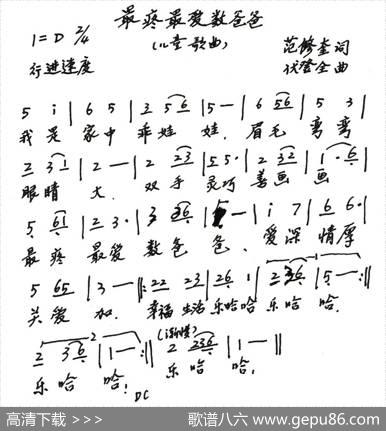 最疼最爱数爸爸
1=D 2/4
(儿童歌曲)
范修奎词
行进速度
伏奎金曲
5 i | 6 5 | 3 5 6 | 5 — | 6 5 6 | 5 3 |
我是 家中 乖娃 娃, 眉毛 弯弯
2 3 1 | 2 — | 2 2 3 | 5 5· | 2 3 2 | 1·6 |
眼睛 大. 双手 灵巧 善画 画
5 6 1 | 2 3· | 3 3 6 | 5 — | i 7 | 6 6·|
最疼 最爱 数爸 爸. 爱深 情厚
5 65 | 3 — :‖: 22 23 | 26 1 | 2 3 6 | 5 — :‖
关爱 加. 幸福生活 乐哈哈 乐哈 哈.
2 3 6 | 1 — :‖ 2 2 3 6 | 1 — ‖
(渐慢)
乐哈 哈! 乐哈 哈!
DC
高清下载 >>>
歌谱八六 www.gepu86.com